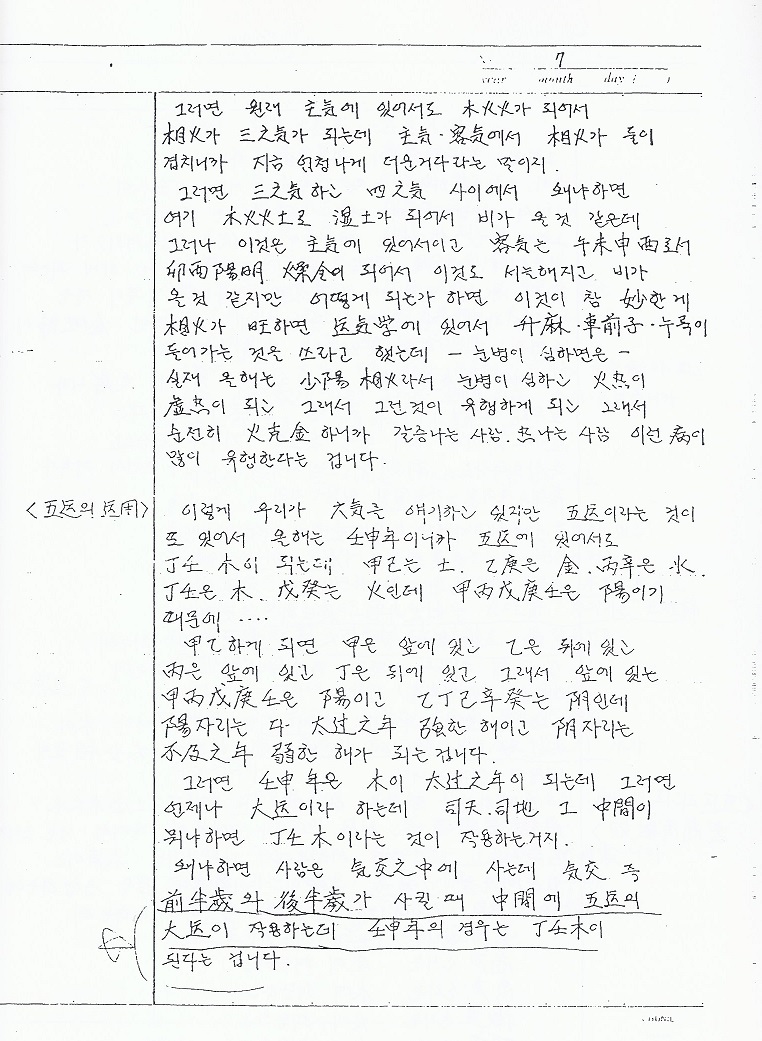 7
year month day
그러면 원래 主気에 있어서도 木火火가 되어서
相火가 三之気가 되는데 主気·客気에서 相火가 둘이
겹치니까 지금 엄청나게 더운거다라는 말이지.
그러면 三之気하고 四之気 사이에서 왜냐하면
여기 木火火土로 湿土가 되어서 비가 올것 같은데
그러나 이것은 主気에 있어서이고 客気는 午未申酉로서
卯酉陽明 燥金이 되어서 이것도 서늘해지고 비가
올것 같지만 어떻게 되는가 하면 이것이 참 妙한게
相火가 旺하면 运気学에 있어서 升麻·車前子·누룩이
들어가는 것은 쓰라고 했는데 - 눈병이 심하면은 -
실재 올해는 少陽 相火라서 눈병이 심하고 火热이
虚热이 되고 그래서 그런것이 유행하게 되고 그래서
순전히 火克金 하니까 갈증나는 사람. 热나는 사람 이런 病이
많이 유행한다는 겁니다.
<五运의 运用> 이렇게 우리가 六気를 얘기하고 있지만 五运이라는 것이
또 있어서 올해는 壬申年이니까 五运에 있어서도
丁壬 木이 되는데 甲己는 土. 乙庚은 金. 丙辛은 水.
丁壬은 木. 戊癸는 火인데 甲丙戊庚壬은 陽이기
때문에 ....
甲乙하게 되면 甲은 앞에 있고 乙은 뒤에 있고
丙은 앞에 있고 丁은 뒤에 있고 그래서 앞에 있는
甲丙戊庚壬은 陽이고 乙丁己辛癸는 阴인데
陽자리는 다 太过之年 强한 해이고 阴자리는
不及之年 弱한 해가 되는겁니다.
그러면 壬申年은 木이 太过之年이 되는데 그러면
언제나 大运이라 하는데 司天.司地 그 中間이
뭐냐하면 丁壬木이라는 것이 作用하는거지.
왜냐하면 사람은 気交之中에 사는데 気交 즉
前半歲와 後半歲가 사귈 때 中間에 五运의
大运이 作用하는데 壬申年의 경우는 丁壬木이
된다는 겁니다.